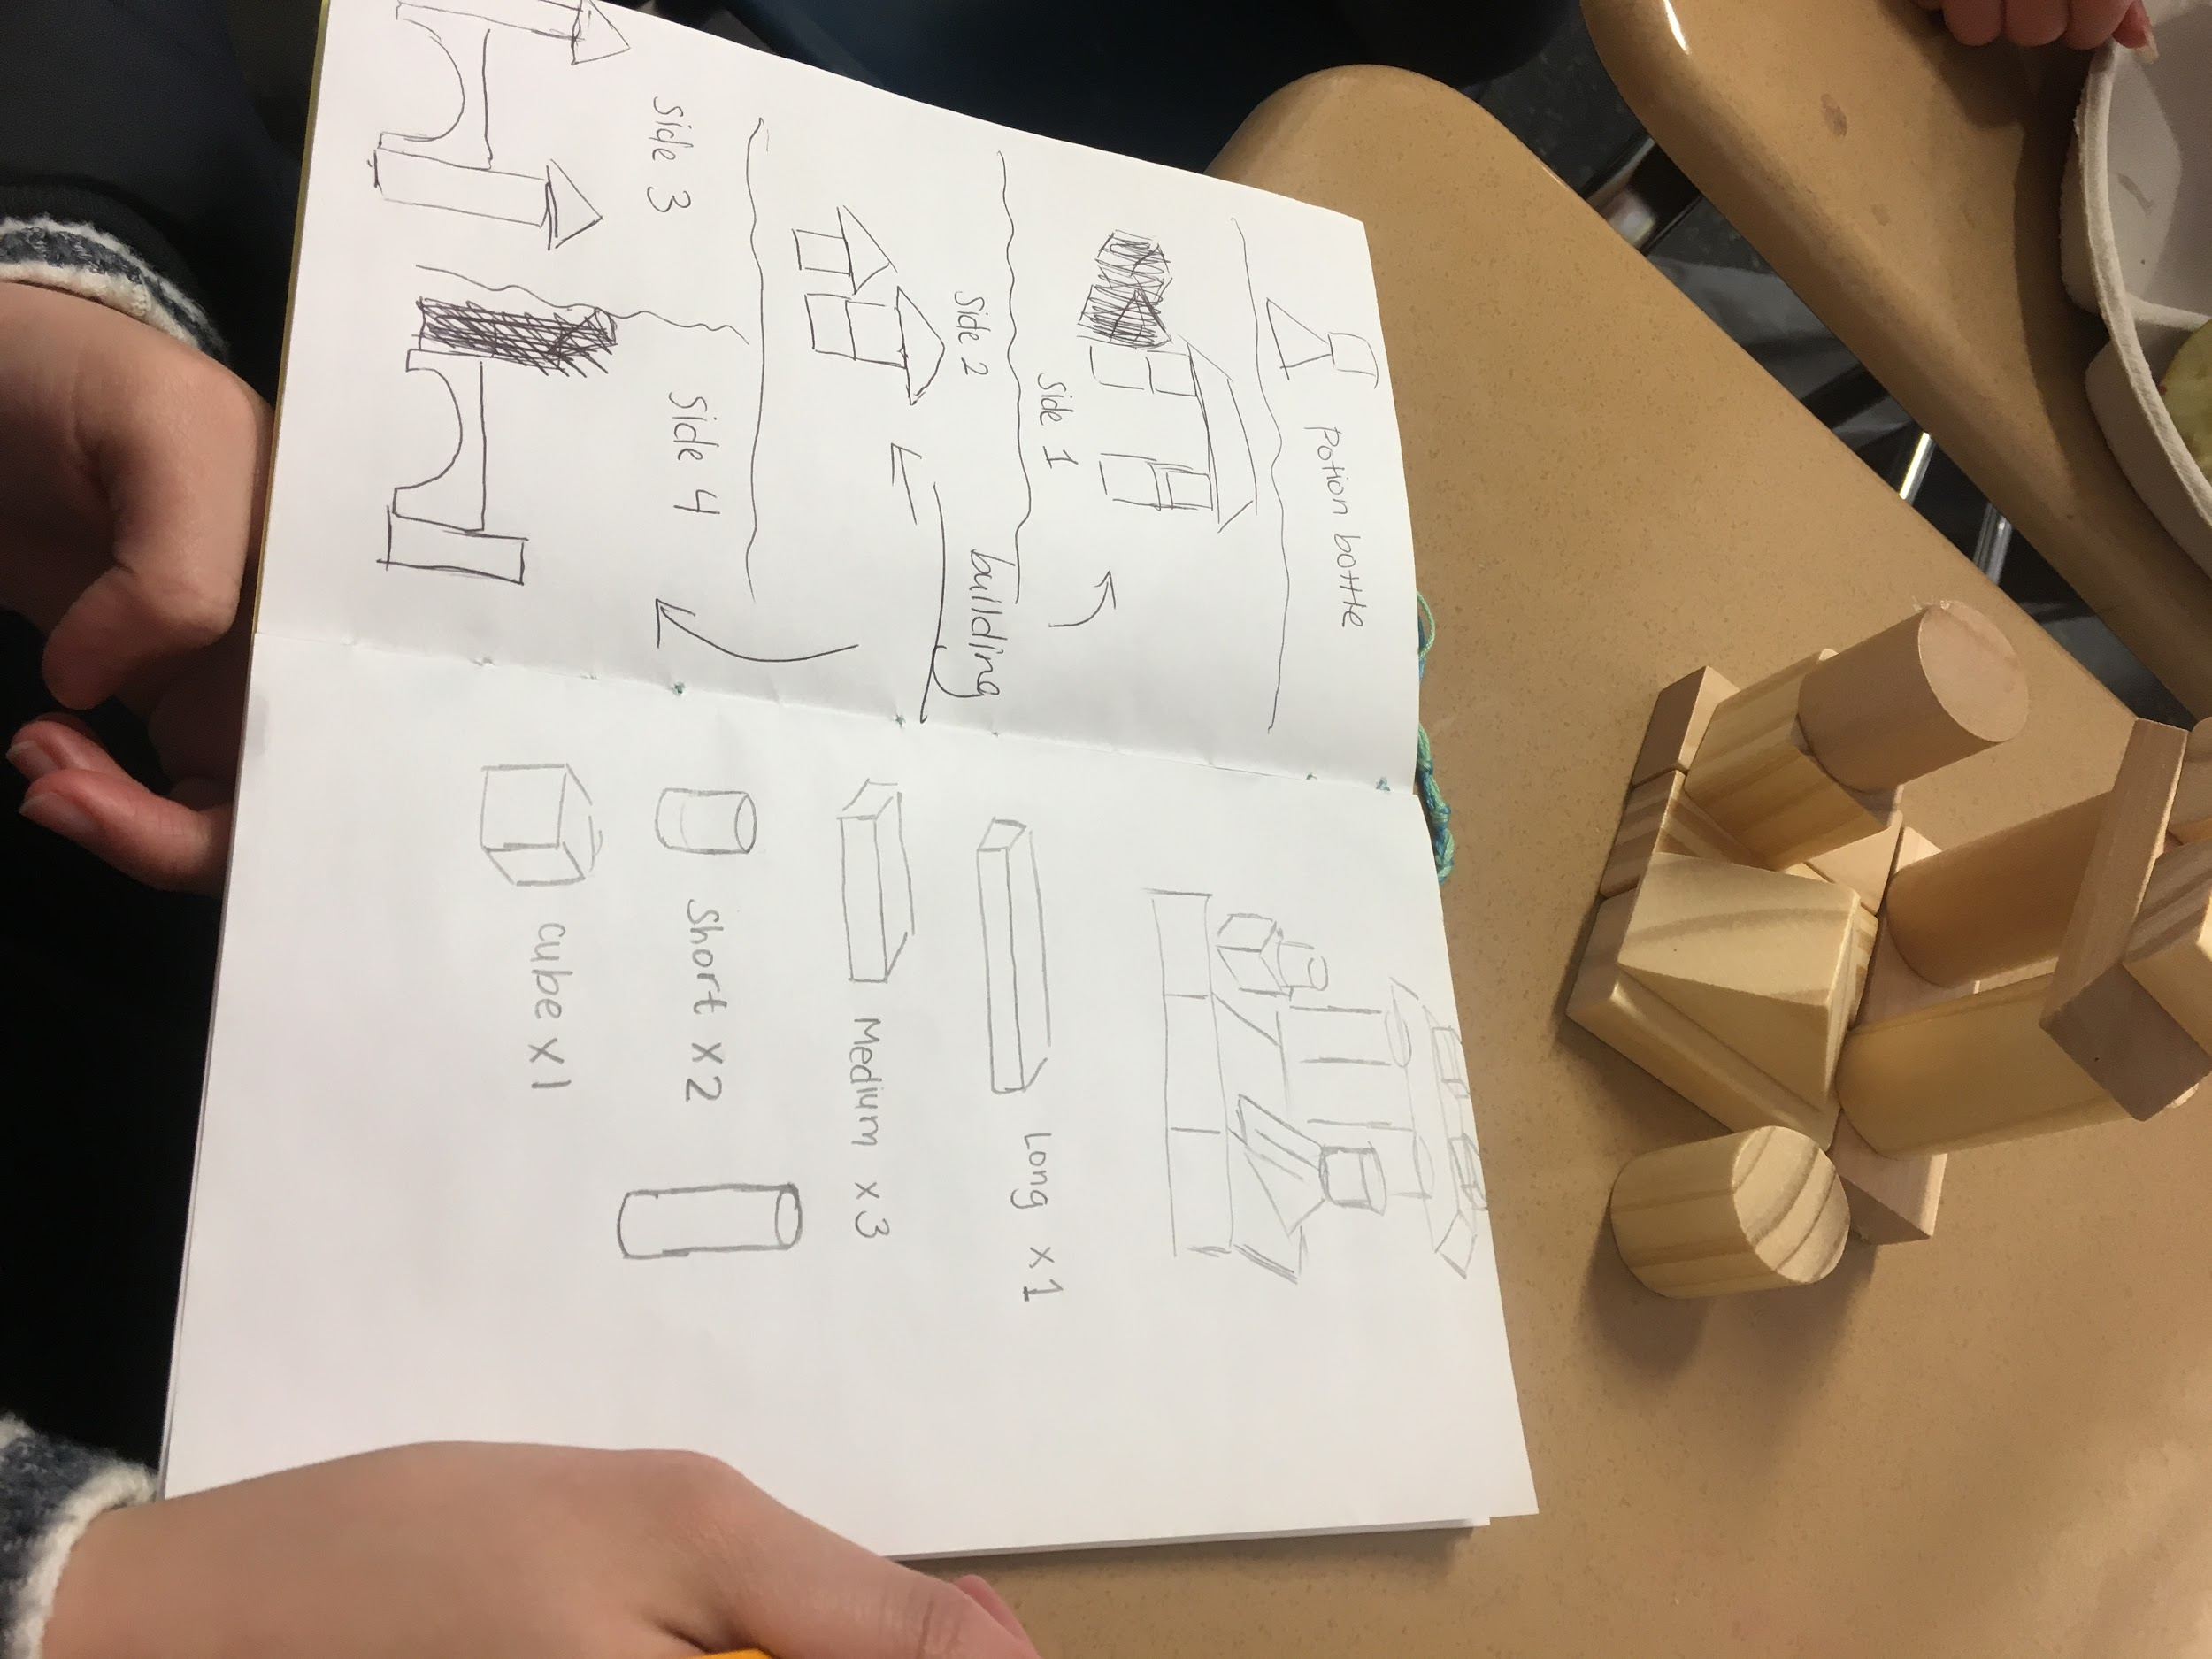 Potion bottle
side 1
building
side 2
side 3
side 4
Long x 1
Medium x 3
short x 2
cube x 1